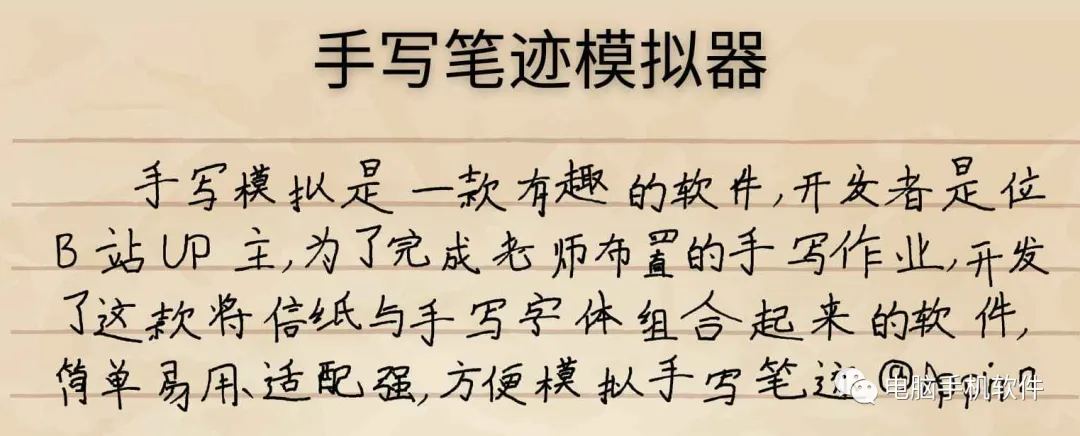 手写笔迹模拟器
手写模拟是一款有趣的软件,开发者是位
B站UP主,为了完成老师布置的手写作业,开发
了这款将信纸与手写字体组合起来的软件,
简单易用、适配强,方便模拟手写笔迹
电脑手机软件